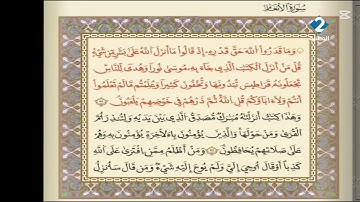 سورة الأنعام
2
الوطنية
وَمَا قَدَرُوا۟ ٱللَّهَ حَقَّ قَدْرِهِۦٓ إِذْ قَالُوا۟ مَآ أَنزَلَ ٱللَّهُ عَلَىٰ بَشَرٍ مِّن شَىْءٍ
قُلْ مَنْ أَنزَلَ ٱلْكِتَٰبَ ٱلَّذِى جَآءَ بِهِۦ مُوسَىٰ نُورًا وَهُدًى لِّلنَّاسِ
تَجْعَلُونَهُۥ قَرَاطِيسَ تُبْدُونَهَا وَتُخْفُونَ كَثِيرًا وَعُلِّمْتُم مَّا لَمْ تَعْلَمُوٓا۟
أَنتُمْ وَلَآ ءَابَآؤُكُمْ قُلِ ٱللَّهُ ثُمَّ ذَرْهُمْ فِى خَوْضِهِمْ يَلْعَبُونَ
وَهَٰذَا كِتَٰبٌ أَنزَلْنَٰهُ مُبَارَكٌ مُّصَدِّقُ ٱلَّذِى بَيْنَ يَدَيْهِ وَلِتُنذِرَ أُمَّ
ٱلْقُرَىٰ وَمَنْ حَوْلَهَا وَٱلَّذِينَ يُؤْمِنُونَ بِٱلْءَاخِرَةِ يُؤْمِنُونَ بِهِۦ وَهُمْ
عَلَىٰ صَلَاتِهِمْ يُحَافِظُونَ وَمَنْ أَظْلَمُ مِمَّنِ ٱفْتَرَىٰ عَلَى ٱللَّهِ
كَذِبًا أَوْ قَالَ أُوحِىَ إِلَىَّ وَلَمْ يُوحَ إِلَيْهِ شَىْءٌ وَمَن قَالَ سَأُنزِلُ